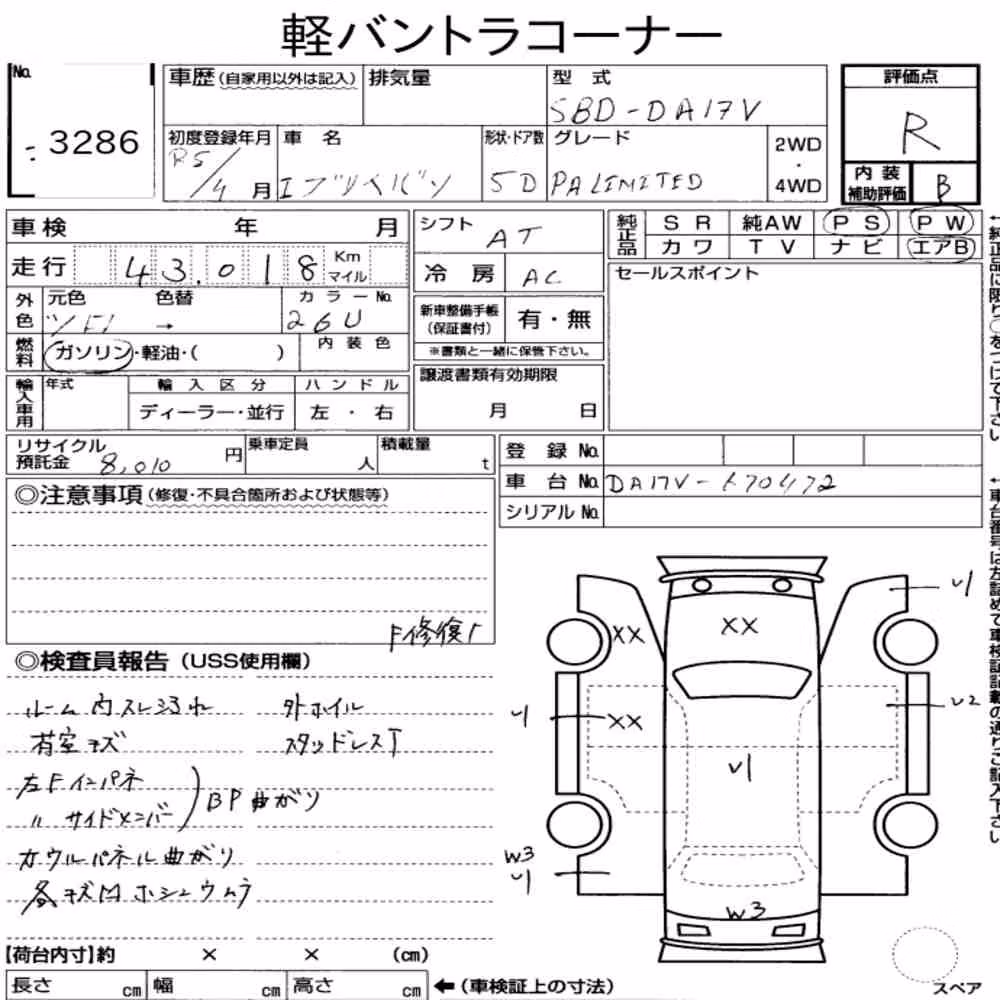 軽バントラコーナー
No.
3286
車歴(自家用以外は記入)
排気量
型 式
5BD-DA17V
評価点
R
初度登録年月
R5/4 月
車 名
エブリイバン
形状・ドア数
5D
グレード
PALIMITED
2WD
・
4WD
内 装
補助評価
B
車検 年 月
シフト
AT
純正品
S R 純AW P S P W
カワ T V ナビ エアB
走行 43.018 Km マイル
冷 房
AC
セールスポイント
外色
元色 色替
カラーNo.
→
26U
新車整備手帳
(保証書付)
有・無
※書類と一緒に保管下さい。
燃料
ガソリン・軽油・( )
内 装 色
輸入車用
年式
輸 入 区 分
ハ ン ド ル
ディーラー・並行
左 ・ 右
譲渡書類有効期限
月 日
リサイクル
預託金 8,010 円
乗車定員
人
積載量
t
登 録 No.
車 台 No. DA17V-670472
シリアル No.
◎注意事項(修復・不具合箇所および状態等)
F修復
◎検査員報告(USS使用欄)
ルーム内スレヨゴレ 外ホイル
荷室キズ スタッドレスT
左Fインパネ
〃 サイドメンバー
BP曲がり
カウルパネル曲がり
各キズ凹ホシュウムラ
XX
XX
U1
U1
XX
U2
U1
W3
U1
W3
【荷台内寸】約 × × (cm)
長さ cm 幅 cm 高さ cm
←(車検証上の寸法)
スペア
←純正品に限り○をつけて下さい
←車台番号は左詰めで車検証記載の通りご記入下さい